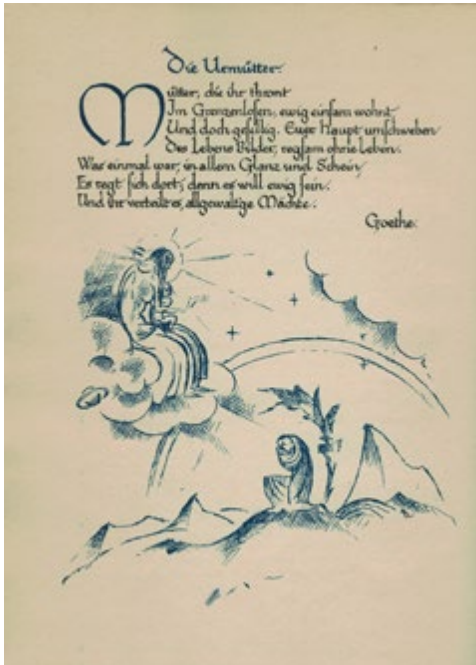 Die Urmütter.
Mütter, die ihr thront
Im Grenzenlosen, ewig einsam wohnt
Und doch gesellig. Euer Haupt umschweben
Des Lebens Bilder, regsam ohne Leben.
Was einmal war, in allem Glanz und Schein
Es regt sich dort; denn es will ewig sein.
Und ihr verteilt es, allgewaltige Mächte.
Goethe.